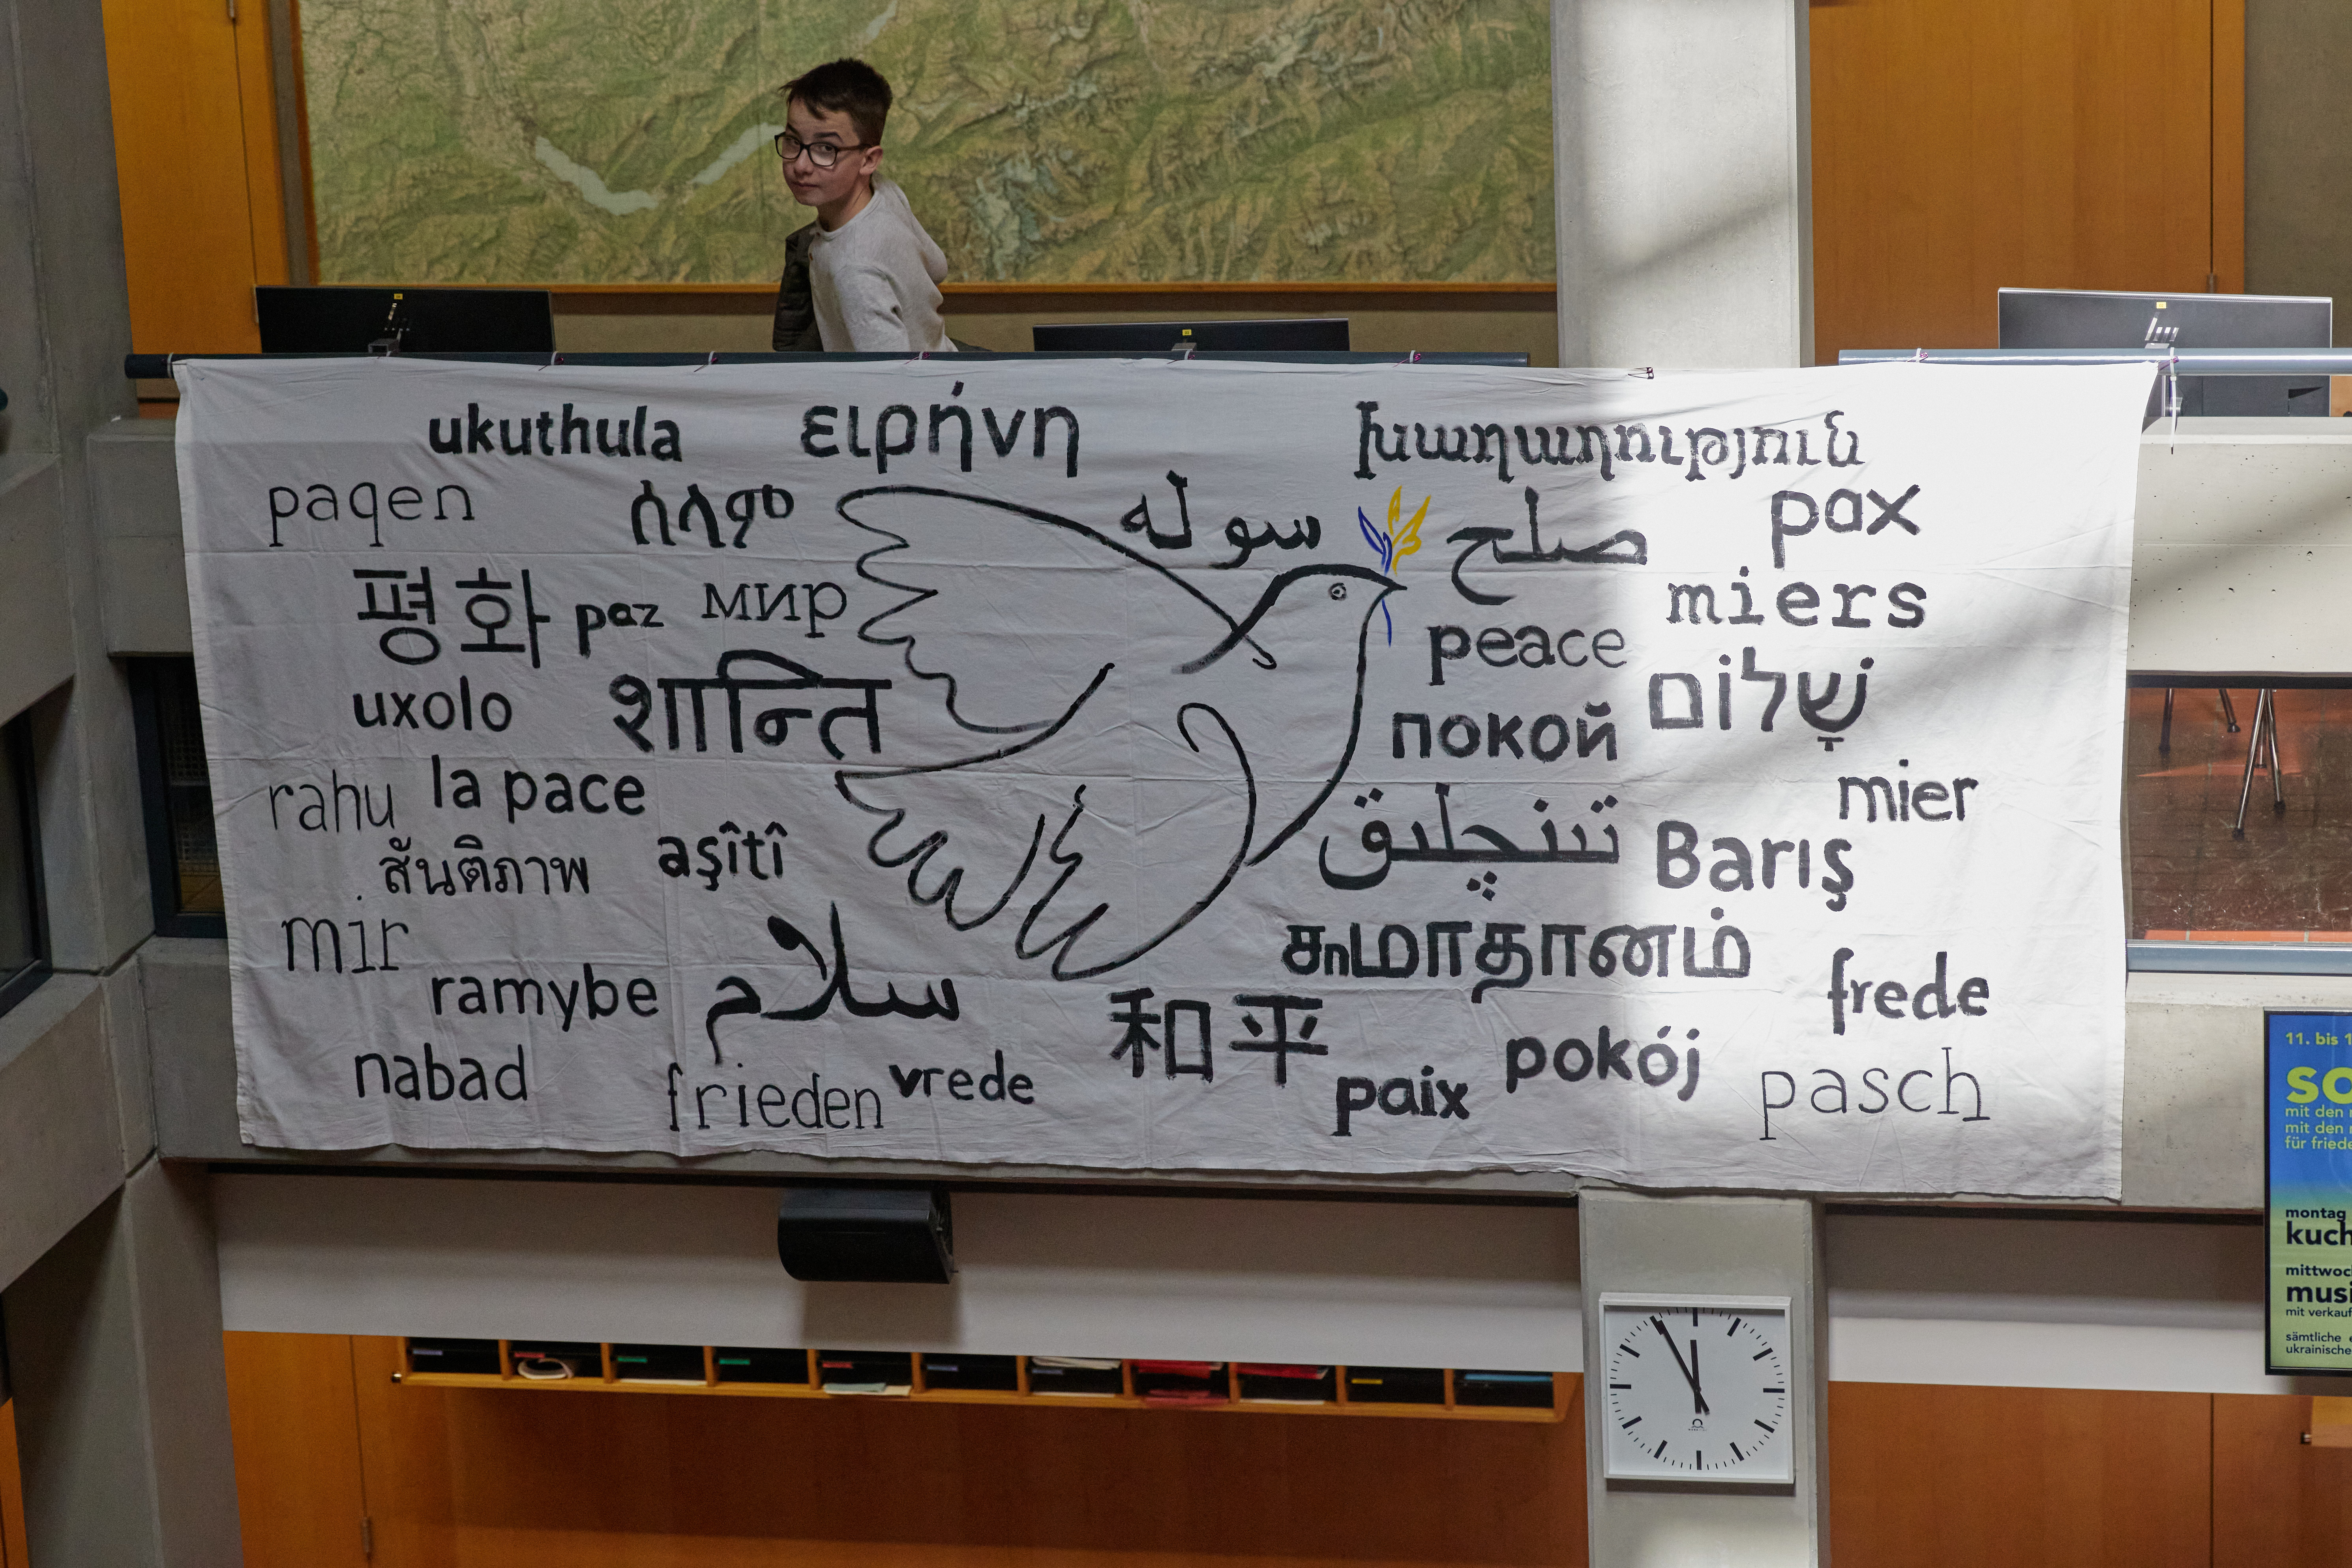 ukuthula
ειρήνη
խաղաղություն
paqen
ሰላም
سوله
صلح
pax
평화
paz
мир
miers
peace
uxolo
शान्ति
покой
שָׁלוֹם
rahu
la pace
mier
تىنچلىق
Barış
สันติภาพ
aşîtî
mir
ramybe
سلام
சமாதானம்
frede
和平
nabad
frieden
vrede
paix
pokój
pasch
11. bis 1
so
mit den
mit den
für friede
montag
kuch
mittwoc
musi
mit verkauf
sämtliche
ukrainische